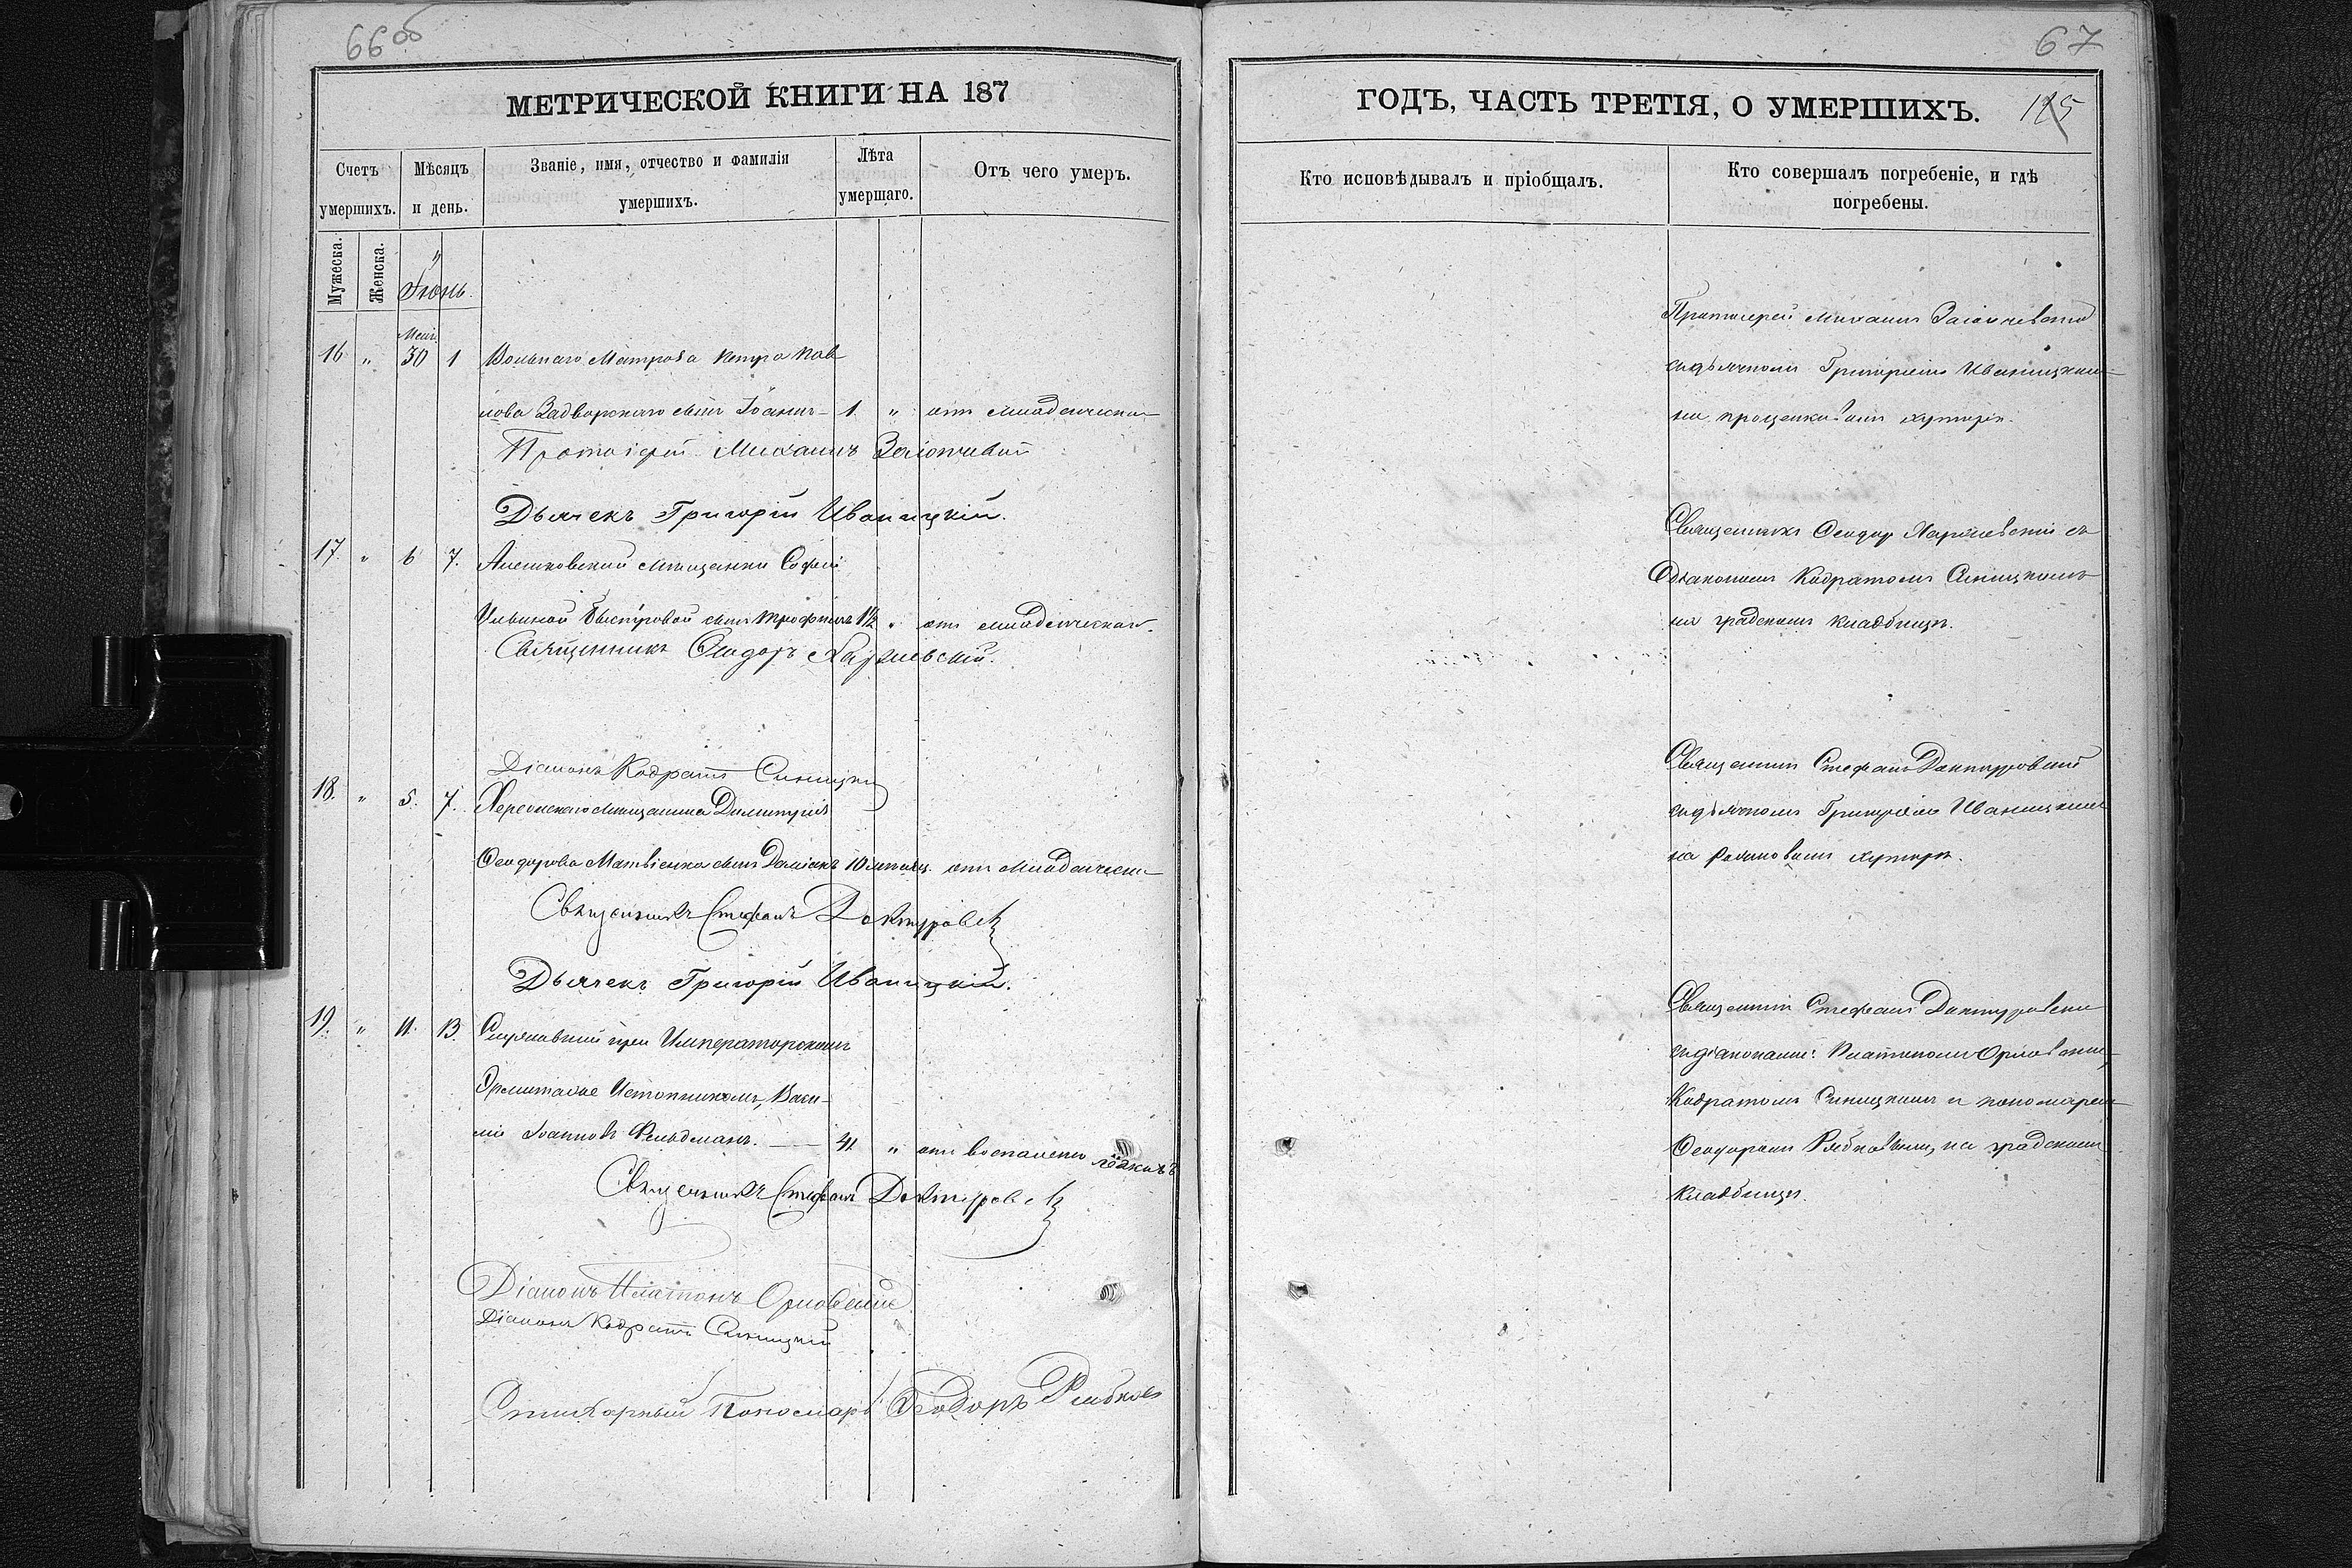 66 об
МЕТРИЧЕСКОЙ КНИГИ НА 187
Счетъ умершихъ.
Мѣсяцъ и день.
Званіе, имя, отчество и фамилія умершихъ.
Лѣта умершаго.
Отъ чего умеръ.
Мужеска.
Женска.
Іюнь.
16 " 30 1 Вольнаго Матроса Петра Пав
лова Задворскаго сынъ Іоаннъ 1. " отъ младенческой
Протоіерей Михаилъ
Дьячекъ Григорій Иваницкій.
17. " 6 7. Алешковской мѣщанки Софіи
Ильиной Быстровой сынъ Трофимъ 1½ " отъ младенческой.
Священникъ Ѳеодоръ
Діаконъ Кодратъ Синицкій
18. " 5. 7. Херсонскаго мѣщанина Димитрія
Ѳеодорова Матвіенка сынъ Даміанъ 10 мѣсяц. отъ младенческой
Священникъ Стефанъ Доктуровскій
Дьячекъ Григорій Иваницкій.
19. " 11. 13. Служившій при Императорскомъ
Эрмитаже Истопникомъ, Васи-
лій Іоанновъ Фельдманъ. 41. " отъ воспаленія лёгкихъ
Священникъ Стефанъ Доктуровскій
Діаконъ Платонъ Орловскій
Діаконъ Кодратъ Синицкій
Стихарный Пономарь Ѳеодоръ Рябковъ
67
ГОДЪ, ЧАСТЬ ТРЕТІЯ, О УМЕРШИХЪ.
125
Кто исповѣдывалъ и пріобщалъ.
Кто совершалъ погребеніе, и гдѣ погребены.
Протоіерей Михаилъ
съ дьячкомъ Григоріемъ Иваницкимъ
на хуторѣ.
Священникъ Ѳеодоръ съ
Діакономъ Кодратомъ Синицкимъ
на градскомъ кладбищѣ.
Священникъ Стефанъ Доктуровскій
съ дьячкомъ Григоріемъ Иваницкимъ
на хуторѣ.
Священникъ Стефанъ Доктуровскій
съ діаконами: Платономъ Орловскимъ,
Кодратомъ Синицкимъ и пономаремъ
Ѳеодоромъ Рябковымъ, на градскомъ
кладбищѣ.